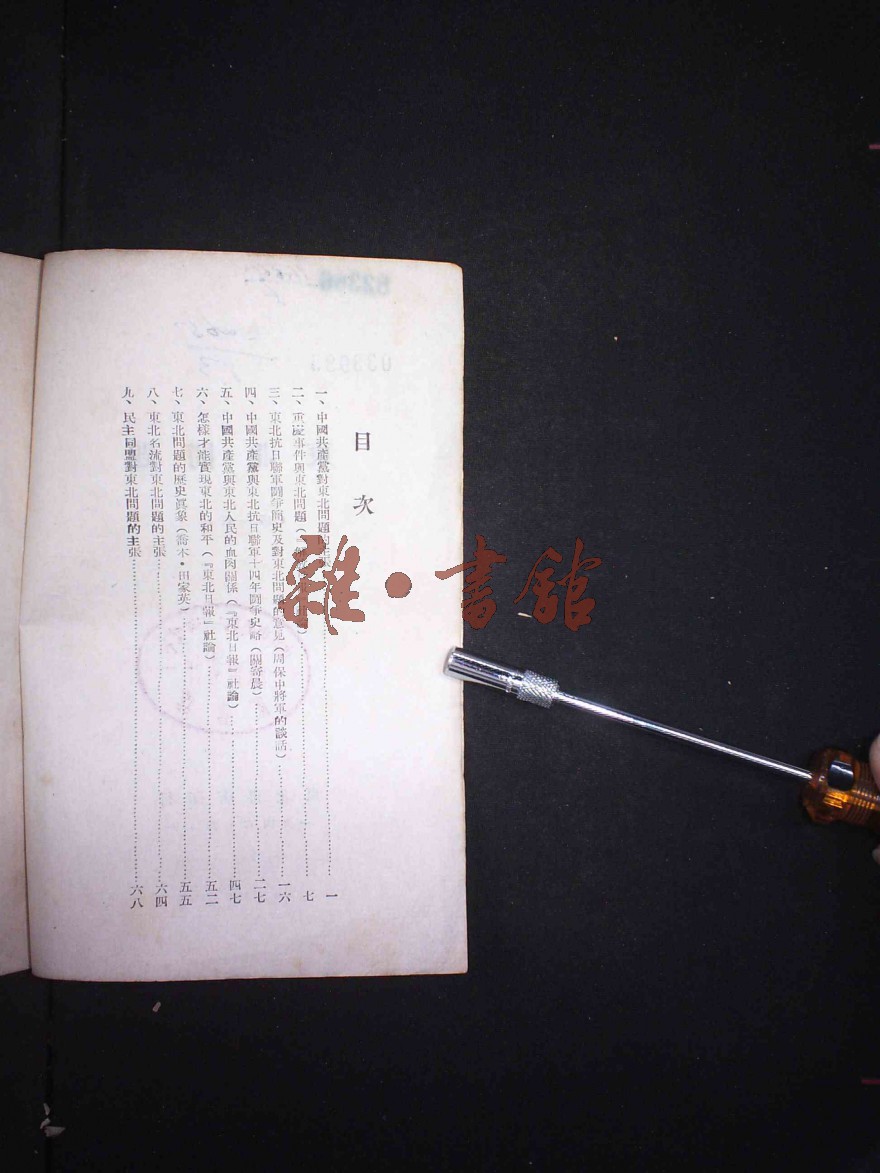 目次
一、中國共產黨對東北問題的主張……一
二、重慶事件與東北問題……七
三、東北抗日聯軍鬪爭簡史及對東北問題的意見（周保中將軍的談話）……一六
四、中國共產黨與東北抗日聯軍十四年鬪爭史略（關寄晨）……二七
五、中國共產黨與東北人民的血肉關係（『東北日報』社論）……四七
六、怎樣才能實現東北的和平（『東北日報』社論）……五二
七、東北問題的歷史眞象（喬木·田家英）……五五
八、東北名流對東北問題的主張……六四
九、民主同盟對東北問題的主張……六八
雜·書館